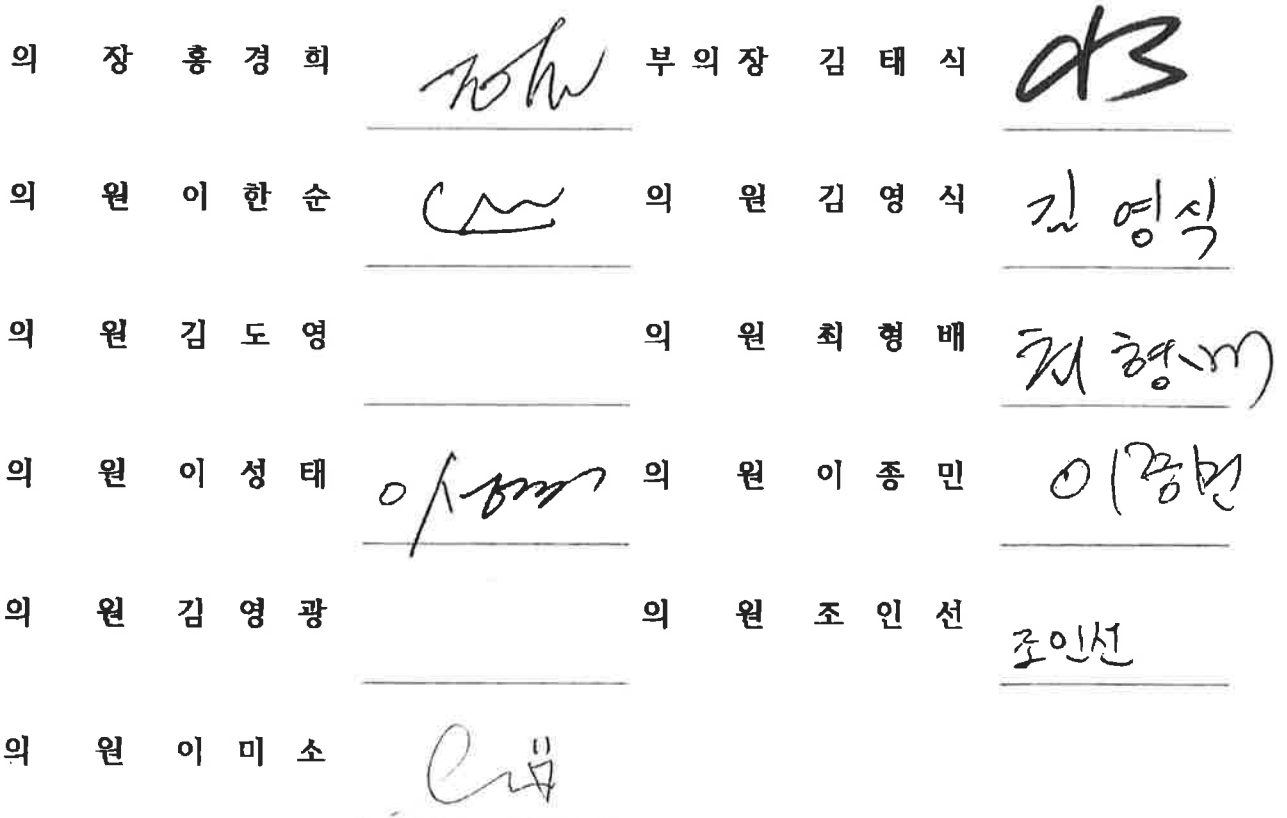 의 장 홍 경 희 부 의 장 김 태 식
의 원 이 한 순 의 원 김 영 식 김 영 식
의 원 김 도 영 의 원 최 형 배 최 형 배
의 원 이 성 태 의 원 이 종 민 이 종 민
의 원 김 영 광 의 원 조 인 선 조인선
의 원 이 미 소